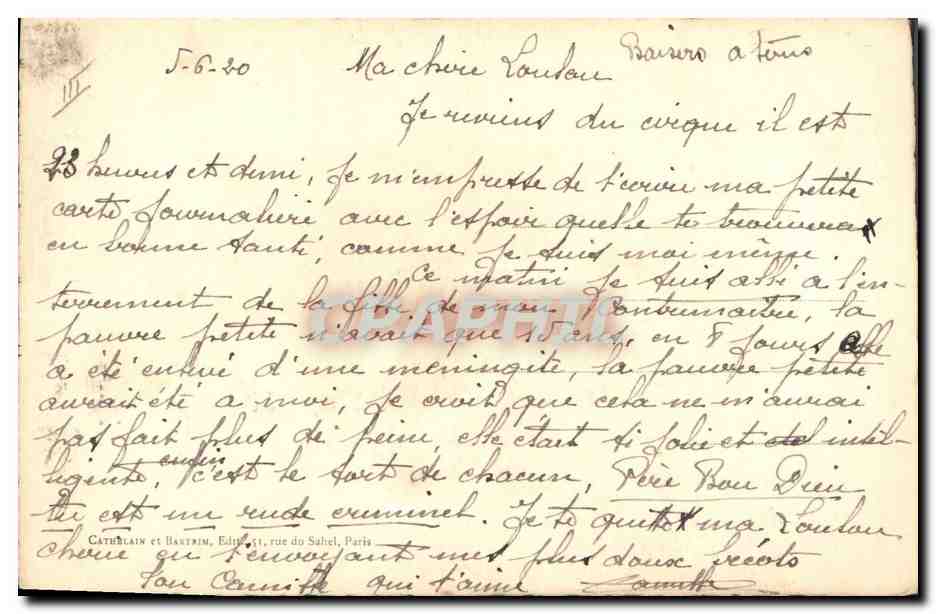 III
5-6-20 Ma chère Loulou Baisers a tous
Je reviens du cirque il est
23 heures et demi, Je m'empresse de t'écrire ma petite
carte journalière avec l'espoir quelle te trouvera
en bonne santé, comme je suis moi même.
Ce matin je suis allé a l'en-
terrement de la fille de mon Contremaitre, la
pauvre petite n'avait que 15 ans, en 8 jours elle
a été enlevé d'une meningite, la pauvre petite
aurait été a moi, je croit que cela ne m'aurai
pas fait plus de peine, elle était si jolie et intel-
ligente, enfin c'est le sort de chacun, Père Bon Dieu
tu est un rude criminel. Je te quitte ma Loulou
CATHELAIN et BASTRIM, Edit. 51, rue du Sahel, Paris
cherie en t'envoyant mes plus doux bécots
Ton Camille qui t'aime Camille